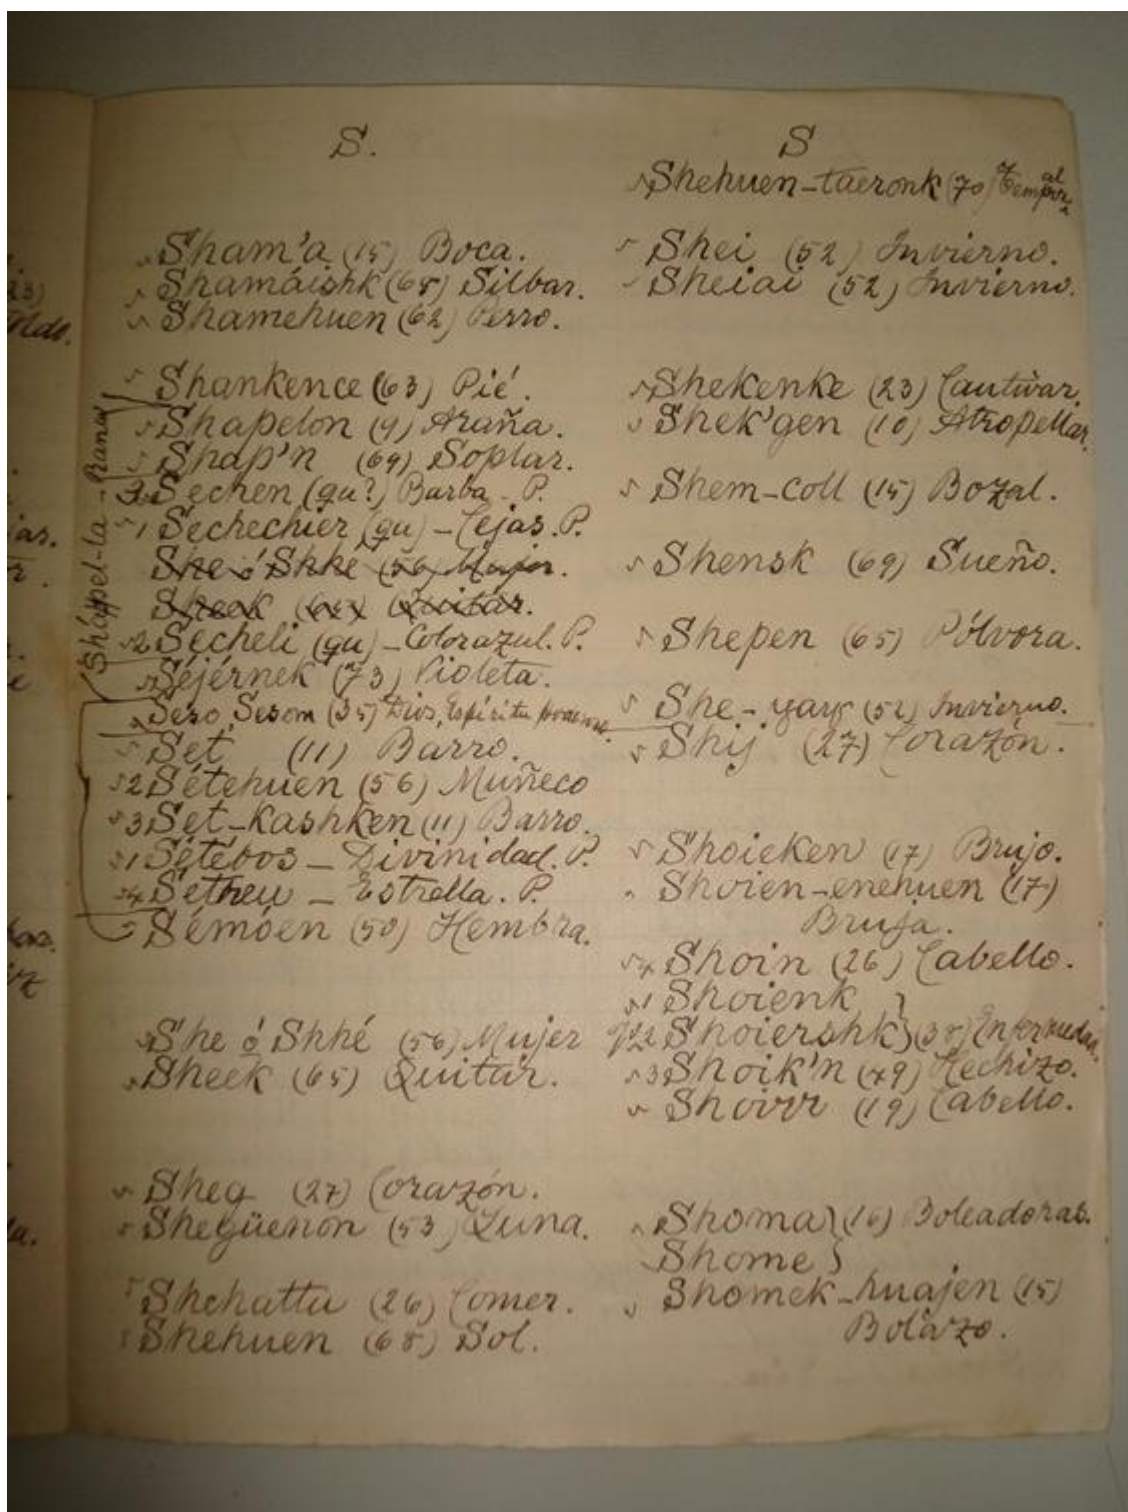 S.
Sham'a (15) Boca.
Shamáishk (68) Silbar.
Shamehuen (62) Perro.
Shankence (63) Pié.
Shápel-la - Rana
Shapelon (9) Araña.
Shap'n (69) Soplar.
Sechen (gu?) Barba - P.
1 Sechechier (gu) - Cejas. P.
She ó Shhé (56) Mujer.
Sheek (65) Quitár.
2 Secheli (gu) - Color azul. P.
Séjérnek (73) Violeta.
Seso, Sesom (35) Dios, Espíritu
Set (11) Barro.
2 Sétehuen (56) Muñeco
3 Set-kashken (11) Barro.
1 Sétébos - Divinidad. P.
4 Setheu - Estrella. P.
Sémóen (50) Hembra.
She ó Shhé (56) Mujer
Sheek (65) Quitár.
Sheg (27) Corazón.
Shegüenon (53) Luna.
Shehattu (26) Comer.
Shehuen (68) Sol.
S
Shehuen-taeronk (70)
Shei (52) Invierno.
Sheiai (52) Invierno.
Shekenke (23) Cautivar.
Shek'gen (10) Atropellar.
Shem-coll (15) Bozal.
Shensk (69) Sueño.
Shepen (65) Pólvora.
She-yark (52) Invierno.
Shij (27) Corazón.
Shoieken (17) Brujo.
Shoien-enehuen (17)
Bruja.
4 Shoin (26) Cabello.
1 Shoienk }
2 Shoiershk } (38) Enfermedad.
3 Shoik'n (49) Hechizo.
Shoirr (19) Cabello.
Shoma } (16) Boleadoras.
Shome }
Shomek-huajen (15)
Bolazo.